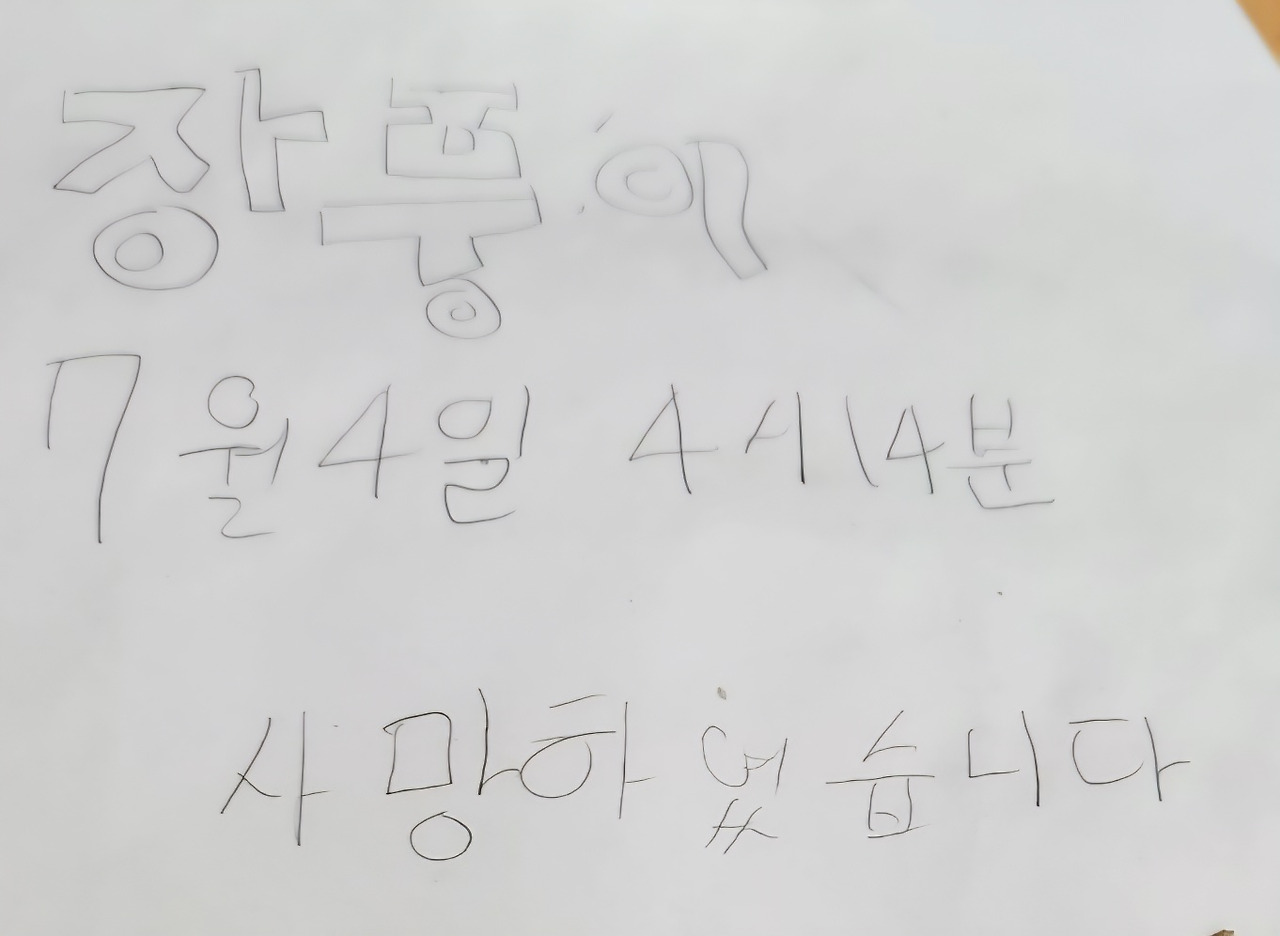 장풍이
7월4일 4시14분
사망하였습니다